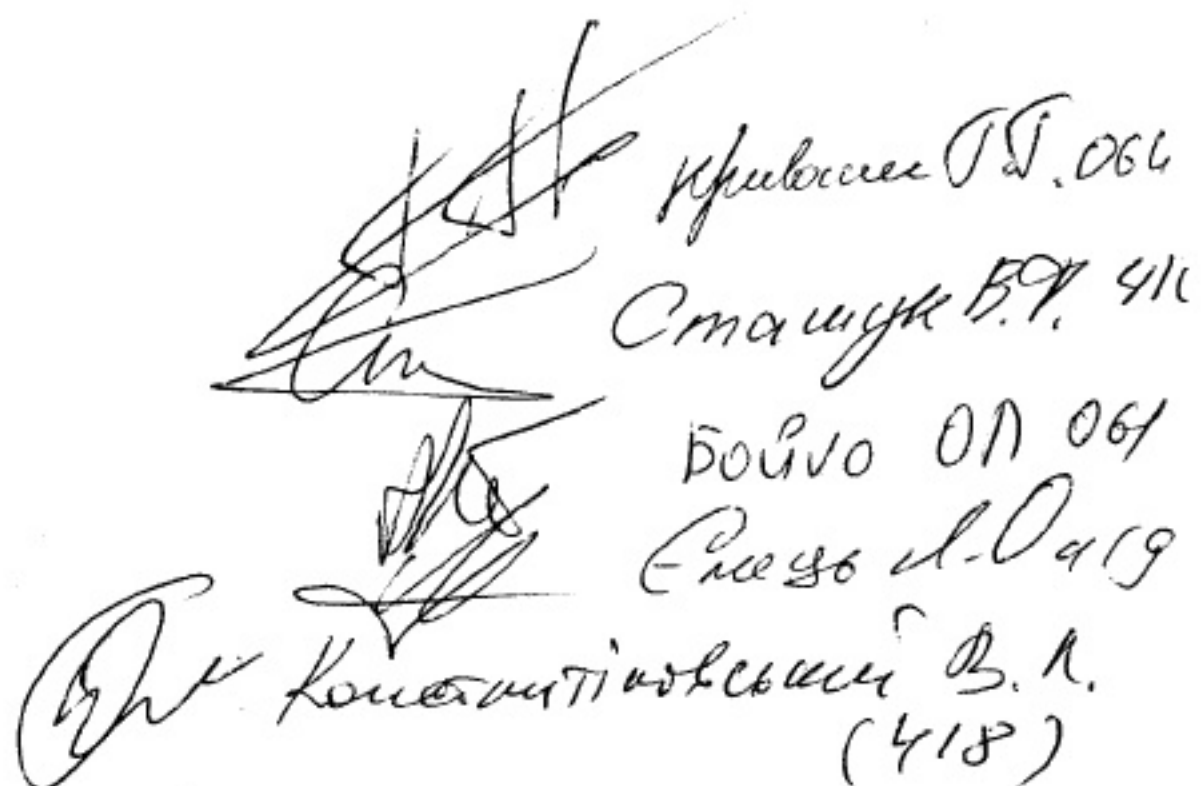 Кривошея Г.Г. 064
Сташук В.Ф. 411
Бойко ОП 061
Ємець Л.О. 419
Константіновський В.Л.
(418)